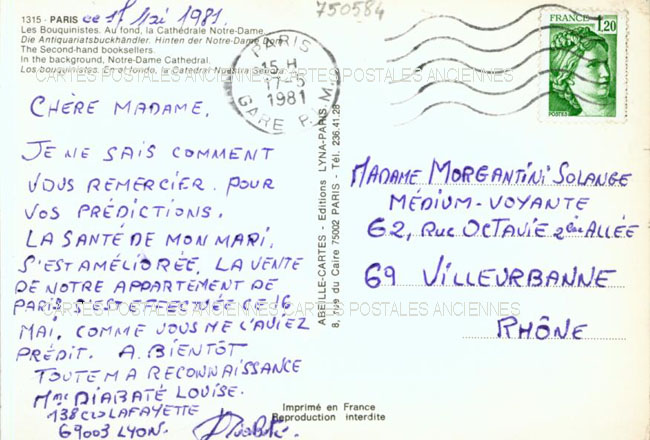 1315 - PARIS ce 17 Mai 1981.
750584
Les Bouquinistes. Au fond, la Cathédrale Notre-Dame.
Die Antiquariatsbuchhändler. Hinten der Notre-Dame Dom.
The Second-hand booksellers.
In the background, Notre-Dame Cathedral.
Los bouquinistas. En el fondo, la Catedral Nuestra Señora.
CARTES POSTALES ANCIENNES CARTES POSTALES ANCIENNES
PARIS
15 H
17-5
1981
GARE P.M.
FRANCE
1,20
POSTES
CHÈRE MADAME,
JE NE SAIS COMMENT
VOUS REMERCIER POUR
VOS PRÉDICTIONS.
LA SANTÉ DE MON MARI,
S'EST AMÉLIORÉE, LA VENTE
DE NOTRE APPARTEMENT DE
PARIS S'EST EFFECTUÉE CE 16
MAI, COMME VOUS ME L'AVIEZ
PRÉDIT. A BIENTÔT
TOUTE MA RECONNAISSANCE
Mme DIABATÉ LOUISE.
138 CRS LAFAYETTE
69003 LYON.
CARTES POSTALES ANCIENNES CARTES POSTALES ANCIENNES
ABEILLE-CARTES - Editions LYNA-PARIS
8, rue du Caire 75002 PARIS - Tél. 236.41.28
MADAME MORGANTINI SOLANGE
MÉDIUM-VOYANTE
62, RUE OCTAVIE 2ème ALLÉE
69 VILLEURBANNE
RHÔNE
Imprimé en France
Reproduction interdite